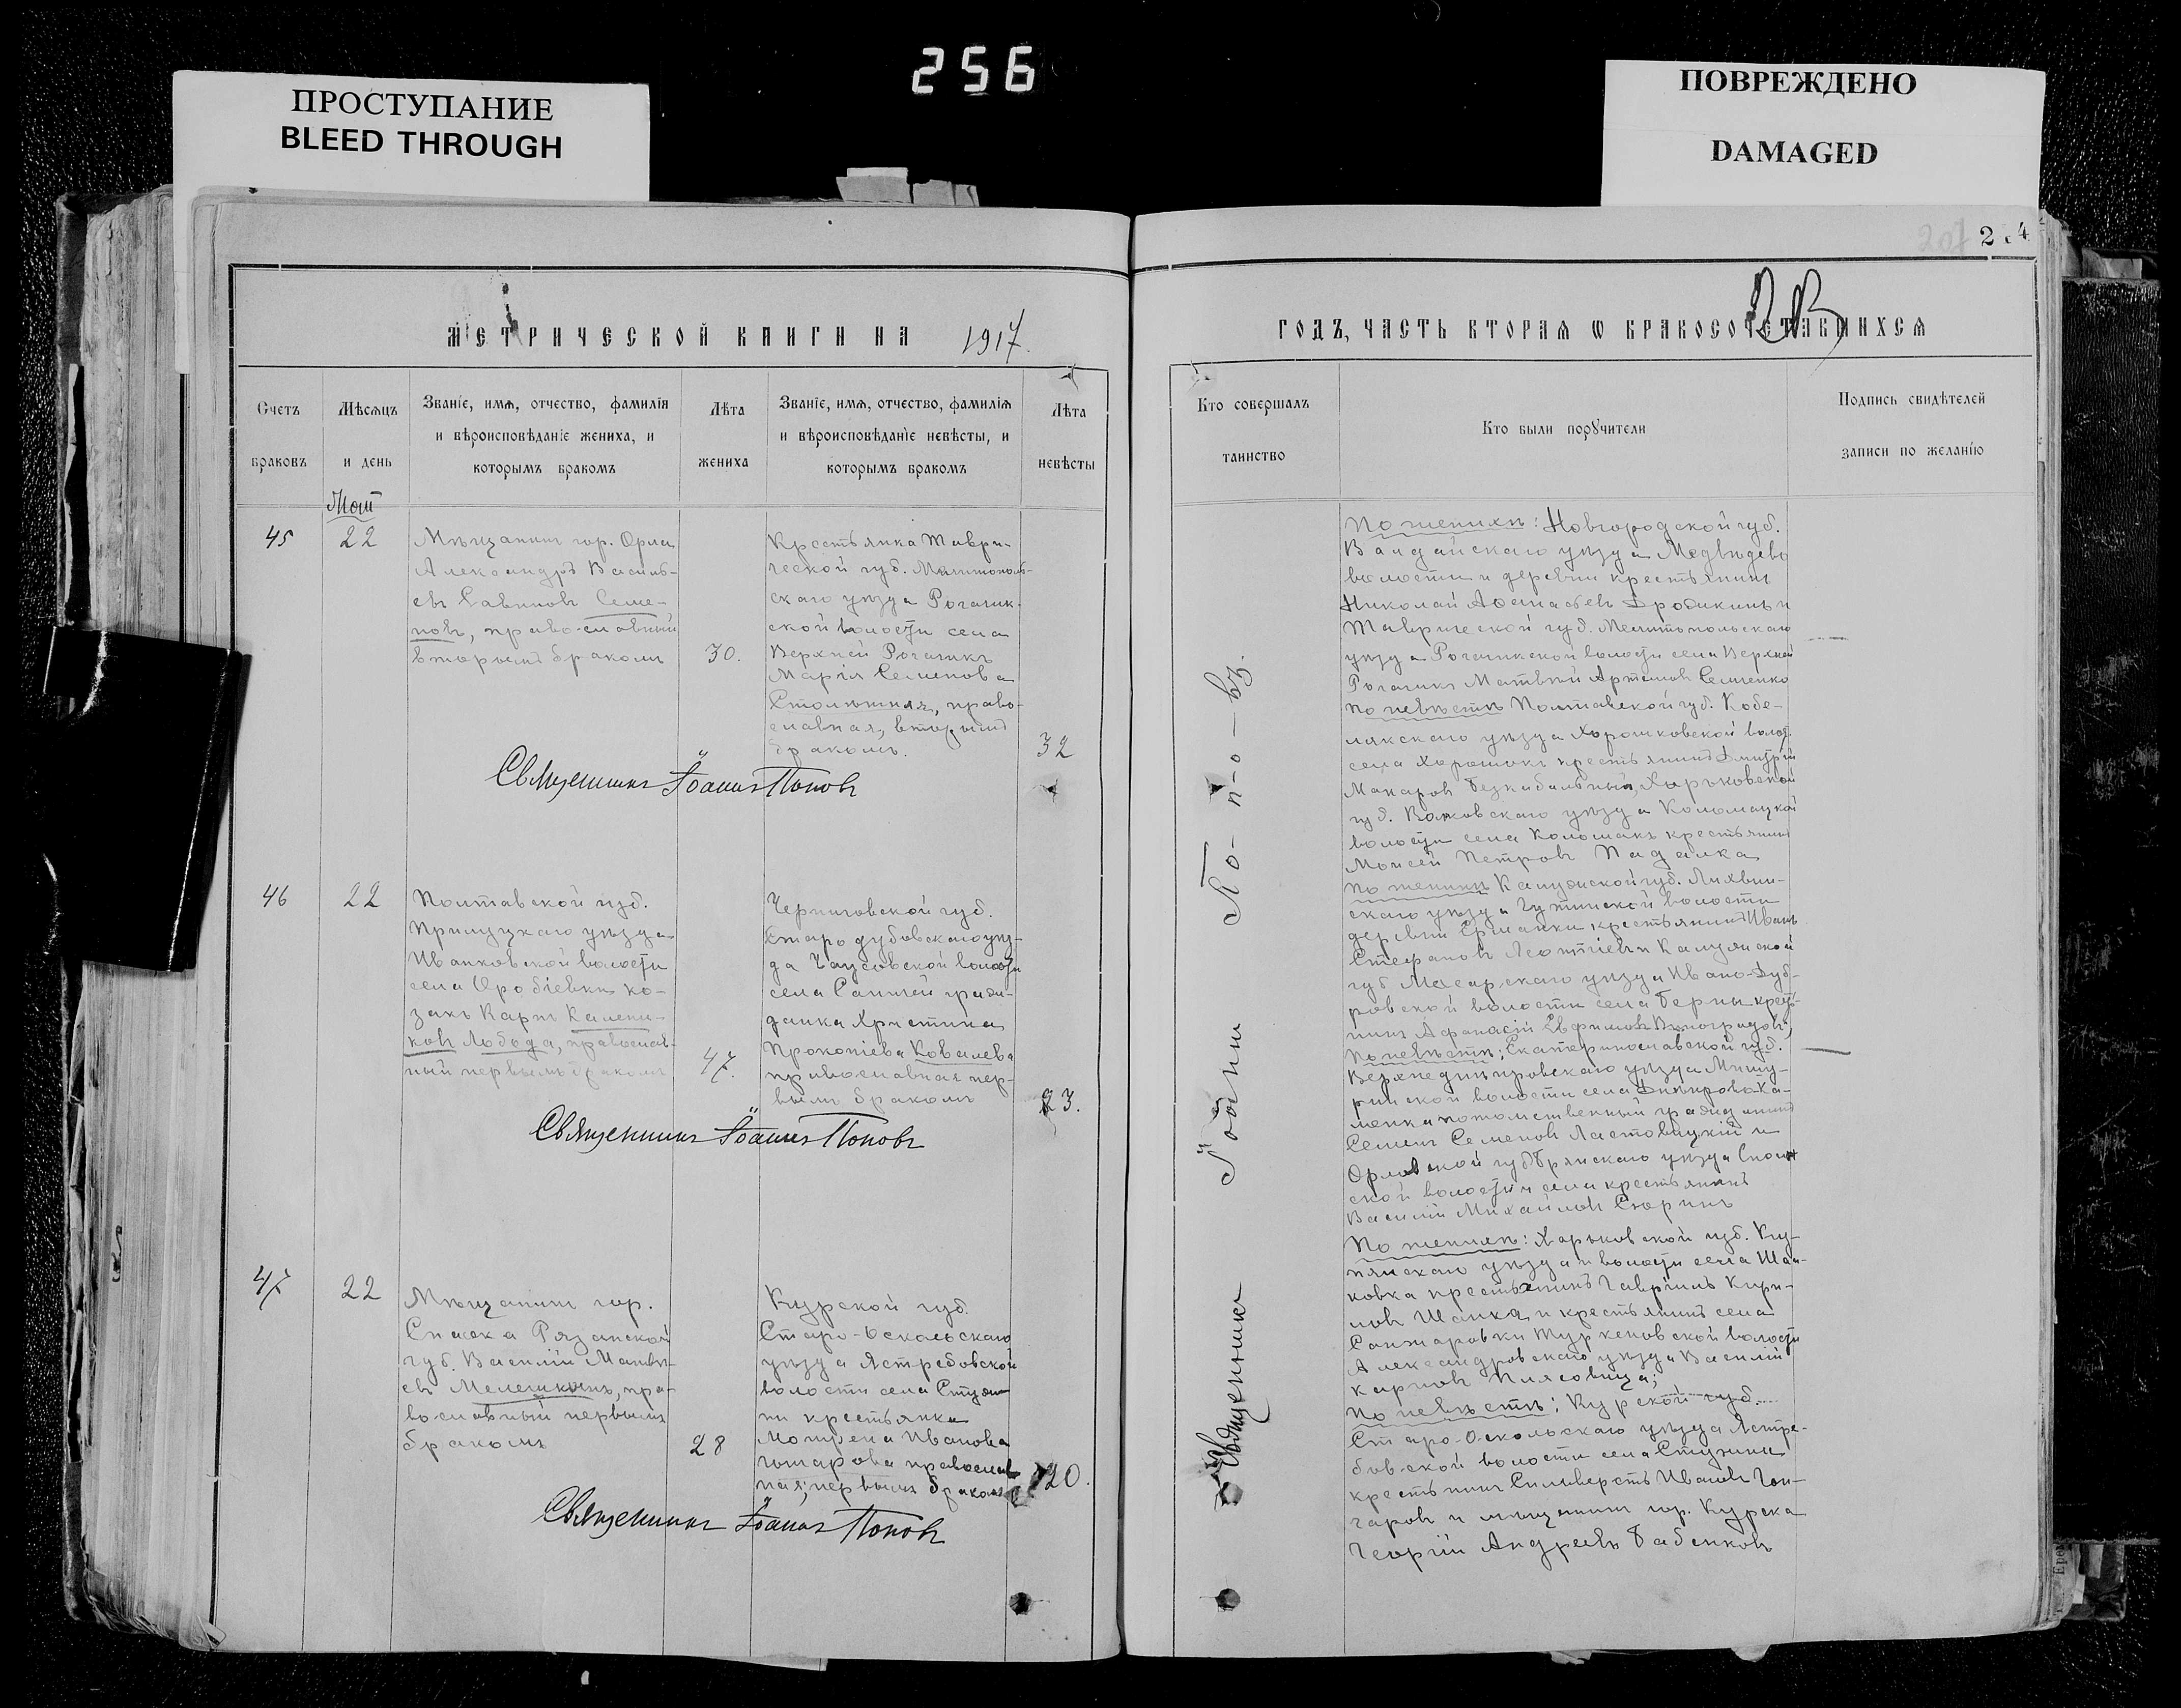 256
ПРОСТУПАНИЕ
BLEED THROUGH
ПОВРЕЖДЕНО
DAMAGED
МЕТРИЧЕСКОЙ КНИГИ НА 1917
Счетъ браковъ
Мѣсяцъ и день
Званіе, имя, отчество, фамилія
и вѣроисповѣданіе жениха, и
которымъ бракомъ
Лѣта жениха
Званіе, имя, отчество, фамилія
и вѣроисповѣданіе невѣсты, и
которымъ бракомъ
Лѣта невѣсты
45
22
Мѣщанинъ гор. Орла
Александръ Василь-
евъ Савиновъ Семе-
новъ, православный
вторымъ бракомъ
30.
Крестьянка Таври-
ческой губ. Мелитополь-
скаго уѣзда Рогачик-
ской волости села
Верхній Рогачикъ
Марія Семенова
православная, вторымъ
бракомъ.
32
Священникъ Іоаннъ Поповъ
46
22
Полтавской губ.
Прилуцкаго уѣзда
Иванковской волости
села Оробіевки ко-
закъ Карпъ Калени-
ковъ Лобода, православ-
ный первымъ бракомъ
47.
Черниговской губ.
Стародубовскаго уѣз-
да волости
села граж-
данка Христина
Прокопіева Ковалева
православная пер-
вымъ бракомъ
23.
Священникъ Іоаннъ Поповъ
47
22
Мѣщанинъ гор.
Спаска Рязанской
губ. Василій Матвѣ-
евъ Мелешкинъ, пра-
вославный первымъ
бракомъ
28
Курской губ.
Старо-Оскольскаго
уѣзда Ястребовской
волости села
крестьянка
Матрена Иванова
Гончарова православ-
ная, первымъ бракомъ
20.
Священникъ Іоаннъ Поповъ
ГОДЪ, ЧАСТЬ ВТОРАЯ Ѡ БРАКОСОЧЕТАВШИХСЯ
Кто совершалъ
таинство
Кто были поручители
Подпись свидѣтелей
записи по желанію
Священникъ Іоаннъ По-по-въ.
По женихѣ: Новгородской губ.
Валдайскаго уѣзда Медвѣдево
волости и деревни крестьянинъ
Николай и
Таврической губ. Мелитопольскаго
уѣзда Рогачикской волости села Верхній
Рогачикъ Матвѣй Артемовъ Семченко
по невѣстѣ Полтавской губ. Кобе-
лякскаго уѣзда Хорошковской волос.
села Хорошокъ крестьянинъ Дмитрій
Макаровъ Харьковской
губ. Валковскаго уѣзда Коломацкой
волости села Коломакъ крестьянинъ
Моисей Петровъ Падалка
по женихѣ Калужской губ. Лихвин-
скаго уѣзда волости
деревни крестьянинъ Иванъ
Стефановъ Леонтіевъ и Калужской
губ. уѣзда Ивано-Дуб-
ровской волости села крест-
нинъ Афанасій Ефимовъ Виноградовъ,
по невѣстѣ: Екатеринославской губ.
Верхнеднѣпровскаго уѣзда Мишу-
ринской волости села Днѣпрово-Ка-
менка потомственный гражданинъ
Семенъ Семеновъ Ластовицкій и
Орловской губ. Брянскаго уѣзда
ской волости и села крестьянинъ
Василій Михайловъ Сюринъ
По женихѣ: Харьковской губ. Ку-
пянскаго уѣзда и волости села
ковка крестьянинъ Гавріилъ Кири-
ловъ и крестьянинъ села
Санжаровки Туркеновской волости
Александровскаго уѣзда Василій
Карповъ
по невѣстѣ: Курской губ.
Старо-Оскольскаго уѣзда Ястре-
бовской волости села
крестьнинъ Сильверстъ Ивановъ Гон-
чаровъ и мѣщанинъ гор. Курска
Георгій Андреевъ Бабенковъ